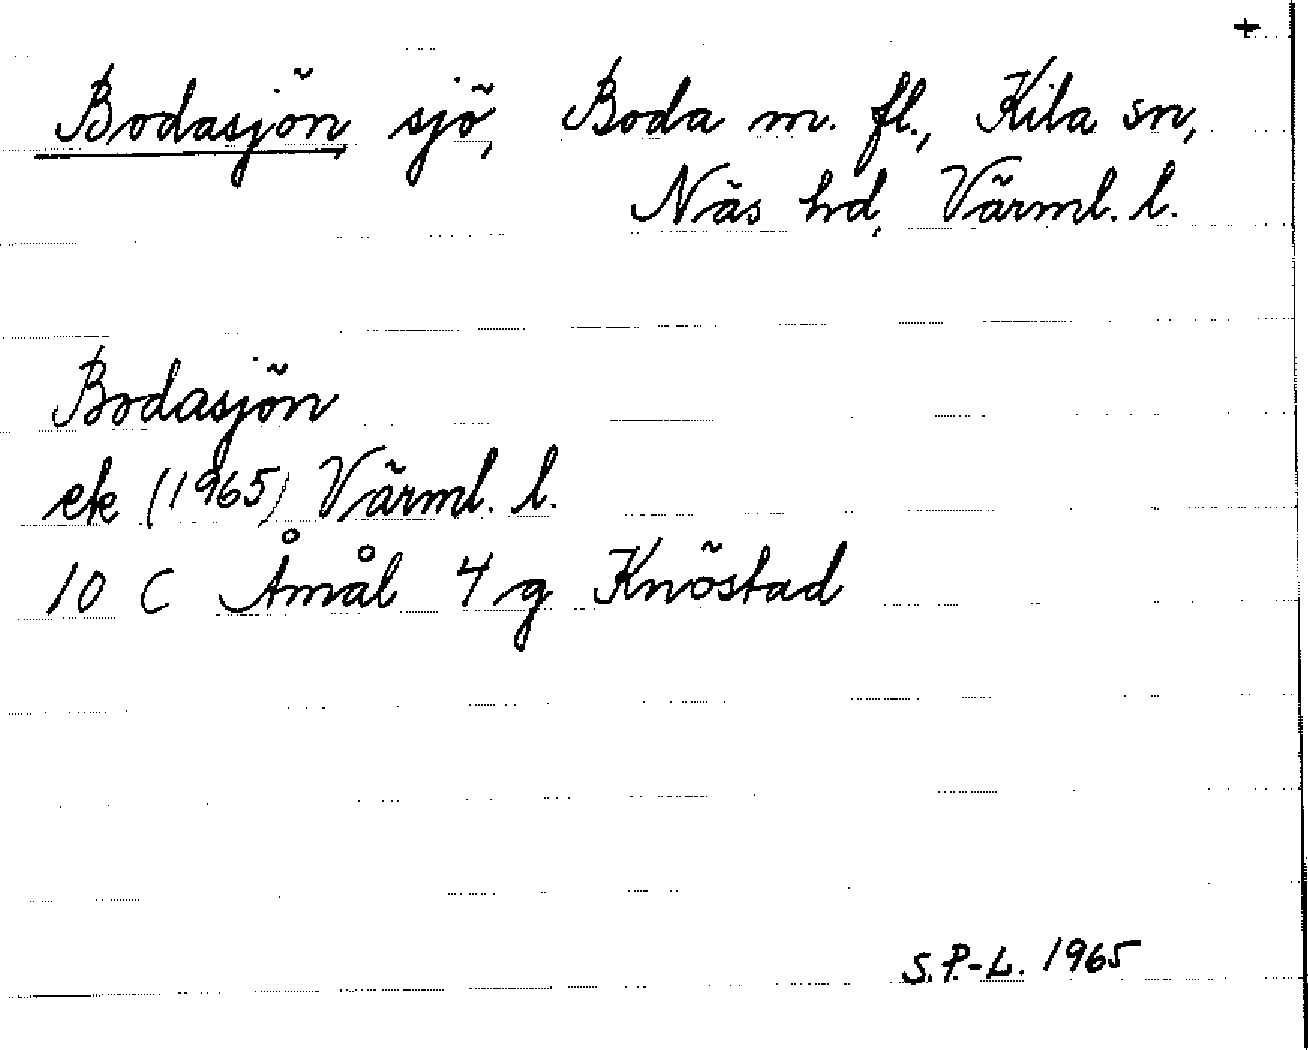 +
Bodasjön, sjö, Boda m. fl., Kila sn,
Näs hd, Värml. l.
Bodasjön
ek (1965) Värml. l.
10 C Åmål 4 g Knöstad
S.P.-L. 1965